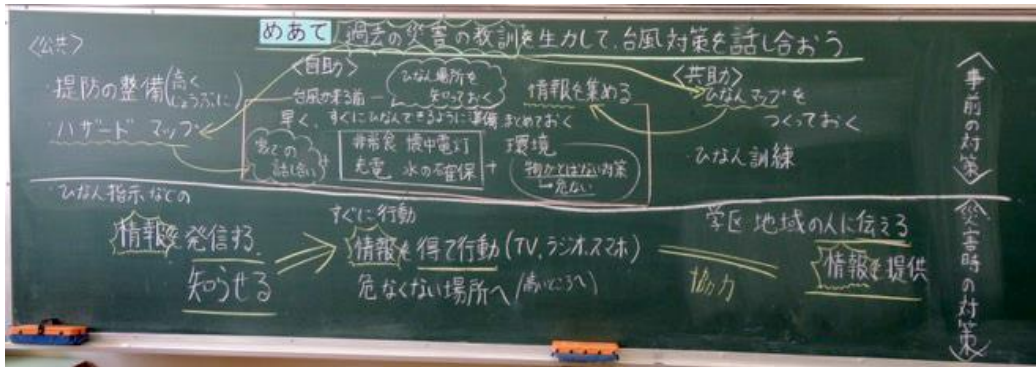 めあて 過去の災害の教訓を生力して、台風対策を話し合おう
〈公共〉
・堤防の整備(高く じょうぶに)
・ハザードマップ
〈自助〉
台風の来る前ー
ひなん場所を
知っておく
情報を集める
早く、すぐにひなんできるように準備 まとめておく
家での
話し合い
+
非常食 懐中電灯
充電 水の確保
+
環境
物がとばない対策
→危ない
〈共助〉
・ひなんマップを
つくっておく
・ひなん訓練
〈事前の対策〉
・ひなん指示などの
情報を発信する
知らせる
すぐに行動
情報を得て行動(TV、ラジオ、スマホ)
危なくない場所へ(高いところへ)
協力
学区 地域の人に伝える
情報を提供
〈災害時の対策〉